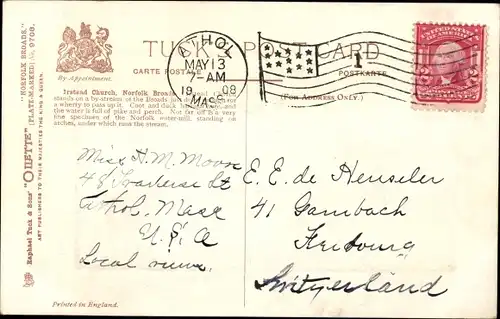 TUCK'S POST CARD
CARTE POSTALE
POSTKARTE
(FOR ADDRESS ONLY.)
By Appointment.
ATHOL
MAY 13
-AM
19 08
MASS.
1
Irstead Church, Norfolk Broads.
stands on a by-stream of the Broads
a wherry to pass up it. Coot and duck
and the water is full of pike and perch. Not far off is a very
fine specimen of the Norfolk water-mill, standing on
arches, under which runs the stream.
"NORFOLK BROADS."
PLATE-MARKED No. 9708.
Raphael Tuck & Sons' "OILETTE"
ART PUBLISHERS TO THEIR MAJESTIES THE KING & QUEEN.
Miss H. M. Moore
48 Traverse St
Athol, Mass
U. S. A
Local view.
E. E. de Henseler
41 Gambach
Freibourg
Switzerland
Printed in England.